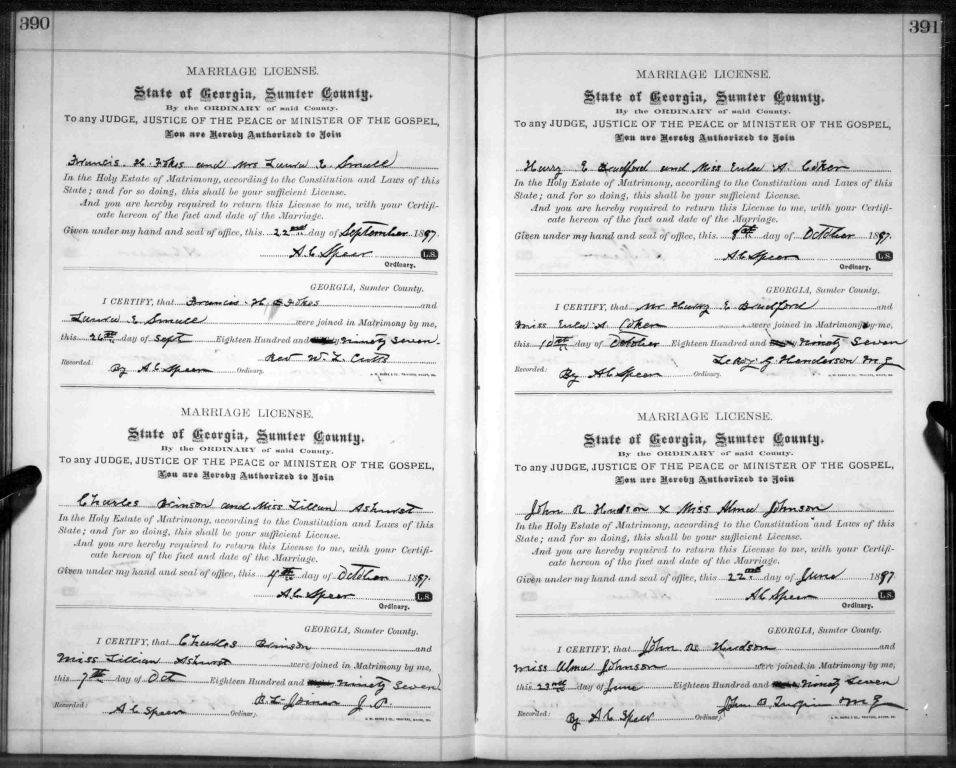 390
MARRIAGE LICENSE.
State of Georgia, Sumter County.
By the ORDINARY of said County.
To any JUDGE, JUSTICE OF THE PEACE or MINISTER OF THE GOSPEL,
You are Hereby Authorized to Join
Francis H. Fokes and Mrs Laura E. Small
In the Holy Estate of Matrimony, according to the Constitution and Laws of this
State; and for so doing, this shall be your sufficient License.
And you are hereby required to return this License to me, with your Certifi-
cate hereon of the fact and date of the Marriage.
Given under my hand and seal of office, this 22nd day of September 1897.
A C Speer L.S.
Ordinary.
GEORGIA, Sumter County.
I CERTIFY, that Francis H. Fokes and
Laura E Small were joined in Matrimony by me,
this 26th day of Sept Eighteen Hundred and ninety seven
Rev W. L.
Recorded:
By A C Speer Ordinary.
MARRIAGE LICENSE.
State of Georgia, Sumter County.
By the ORDINARY of said County.
To any JUDGE, JUSTICE OF THE PEACE or MINISTER OF THE GOSPEL,
You are Hereby Authorized to Join
Charles Brinson and Miss Lillian Ashurst
In the Holy Estate of Matrimony, according to the Constitution and Laws of this
State; and for so doing, this shall be your sufficient License.
And you are hereby required to return this License to me, with your Certifi-
cate hereon of the fact and date of the Marriage.
Given under my hand and seal of office, this 4th day of October 1897.
A C Speer L.S.
Ordinary.
GEORGIA, Sumter County.
I CERTIFY, that Charles Brinson and
Miss Lillian Ashurst were joined in Matrimony by me,
this 7th day of Oct Eighteen Hundred and ninety seven
B. L. Joiner J. P.
Recorded:
A C Speer Ordinary.
391
MARRIAGE LICENSE.
State of Georgia, Sumter County.
By the ORDINARY of said County.
To any JUDGE, JUSTICE OF THE PEACE or MINISTER OF THE GOSPEL,
You are Hereby Authorized to Join
Harry E Bradford and Miss Eula A. Coker
In the Holy Estate of Matrimony, according to the Constitution and Laws of this
State; and for so doing, this shall be your sufficient License.
And you are hereby required to return this License to me, with your Certifi-
cate hereon of the fact and date of the Marriage.
Given under my hand and seal of office, this 9th day of October 1897.
A C Speer L.S.
Ordinary.
GEORGIA, Sumter County.
I CERTIFY, that Mr Harry E. Bradford and
Miss Eula A Coker were joined in Matrimony by me,
this 10th day of October Eighteen Hundred and ninety seven
LeRoy G Henderson M G
Recorded:
By A C Speer Ordinary.
MARRIAGE LICENSE.
State of Georgia, Sumter County.
By the ORDINARY of said County.
To any JUDGE, JUSTICE OF THE PEACE or MINISTER OF THE GOSPEL,
You are Hereby Authorized to Join
John R Hudson & Miss Alma Johnson
In the Holy Estate of Matrimony, according to the Constitution and Laws of this
State; and for so doing, this shall be your sufficient License.
And you are hereby required to return this License to me, with your Certifi-
cate hereon of the fact and date of the Marriage.
Given under my hand and seal of office, this 22nd day of June 1897.
A C Speer L.S.
Ordinary.
GEORGIA, Sumter County.
I CERTIFY, that John R Hudson and
Miss Alma Johnson were joined in Matrimony by me,
this 23rd day of June Eighteen Hundred and ninety seven
John B. Turpin M G
Recorded:
By A C Speer Ordinary.